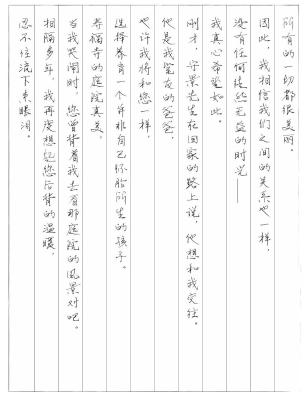 所有的一切都很美丽。
因此，我相信我们之间的关系也一样，
没有任何徒然无益的时光——
我真心希望如此。
刚才，守景先生在回家的路上说，他想和我交往。
他是我挚友的爸爸，
也许我将和您一样，
选择养育一个并非自己怀胎所生的孩子。
寿福寺的庭院真美。
当我哭闹时，您曾背着我去看那庭院的风景对吧。
相隔多年，我再度想起您后背的温暖，
忍不住流下了眼泪。